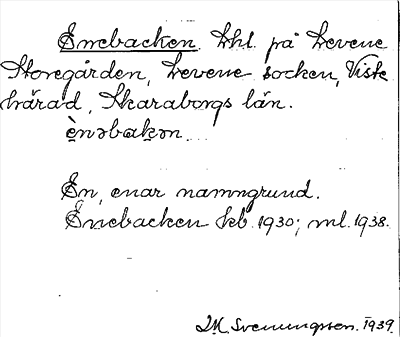 Enebacken. Lhl. på Levene
Storegården, Levene socken, Viste
härad, Skaraborgs län.
ènəbakən.
En, enar namngrund.
Enebacken kb. 1930; ml. 1938.
I.M. Svenungsson. 1939.